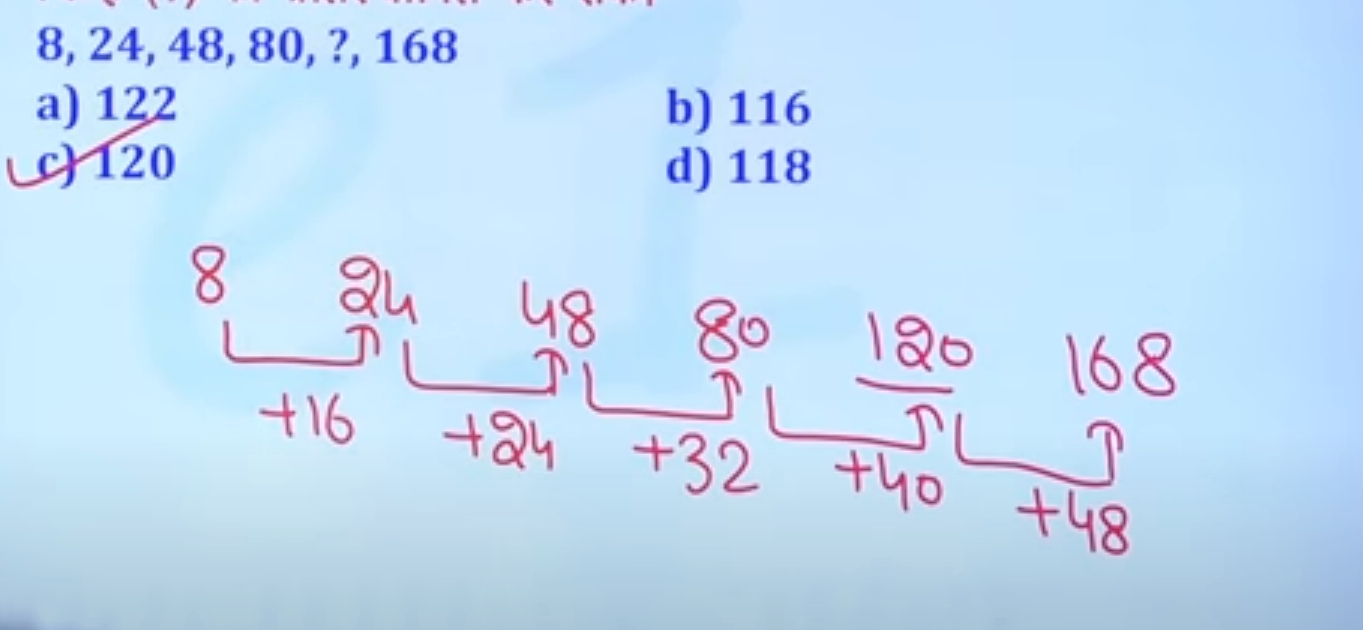 8, 24, 48, 80, ?, 168
a) 122 b) 116
c) 120 d) 118
8 24 48 80 120 168
+16 +24 +32 +40 +48